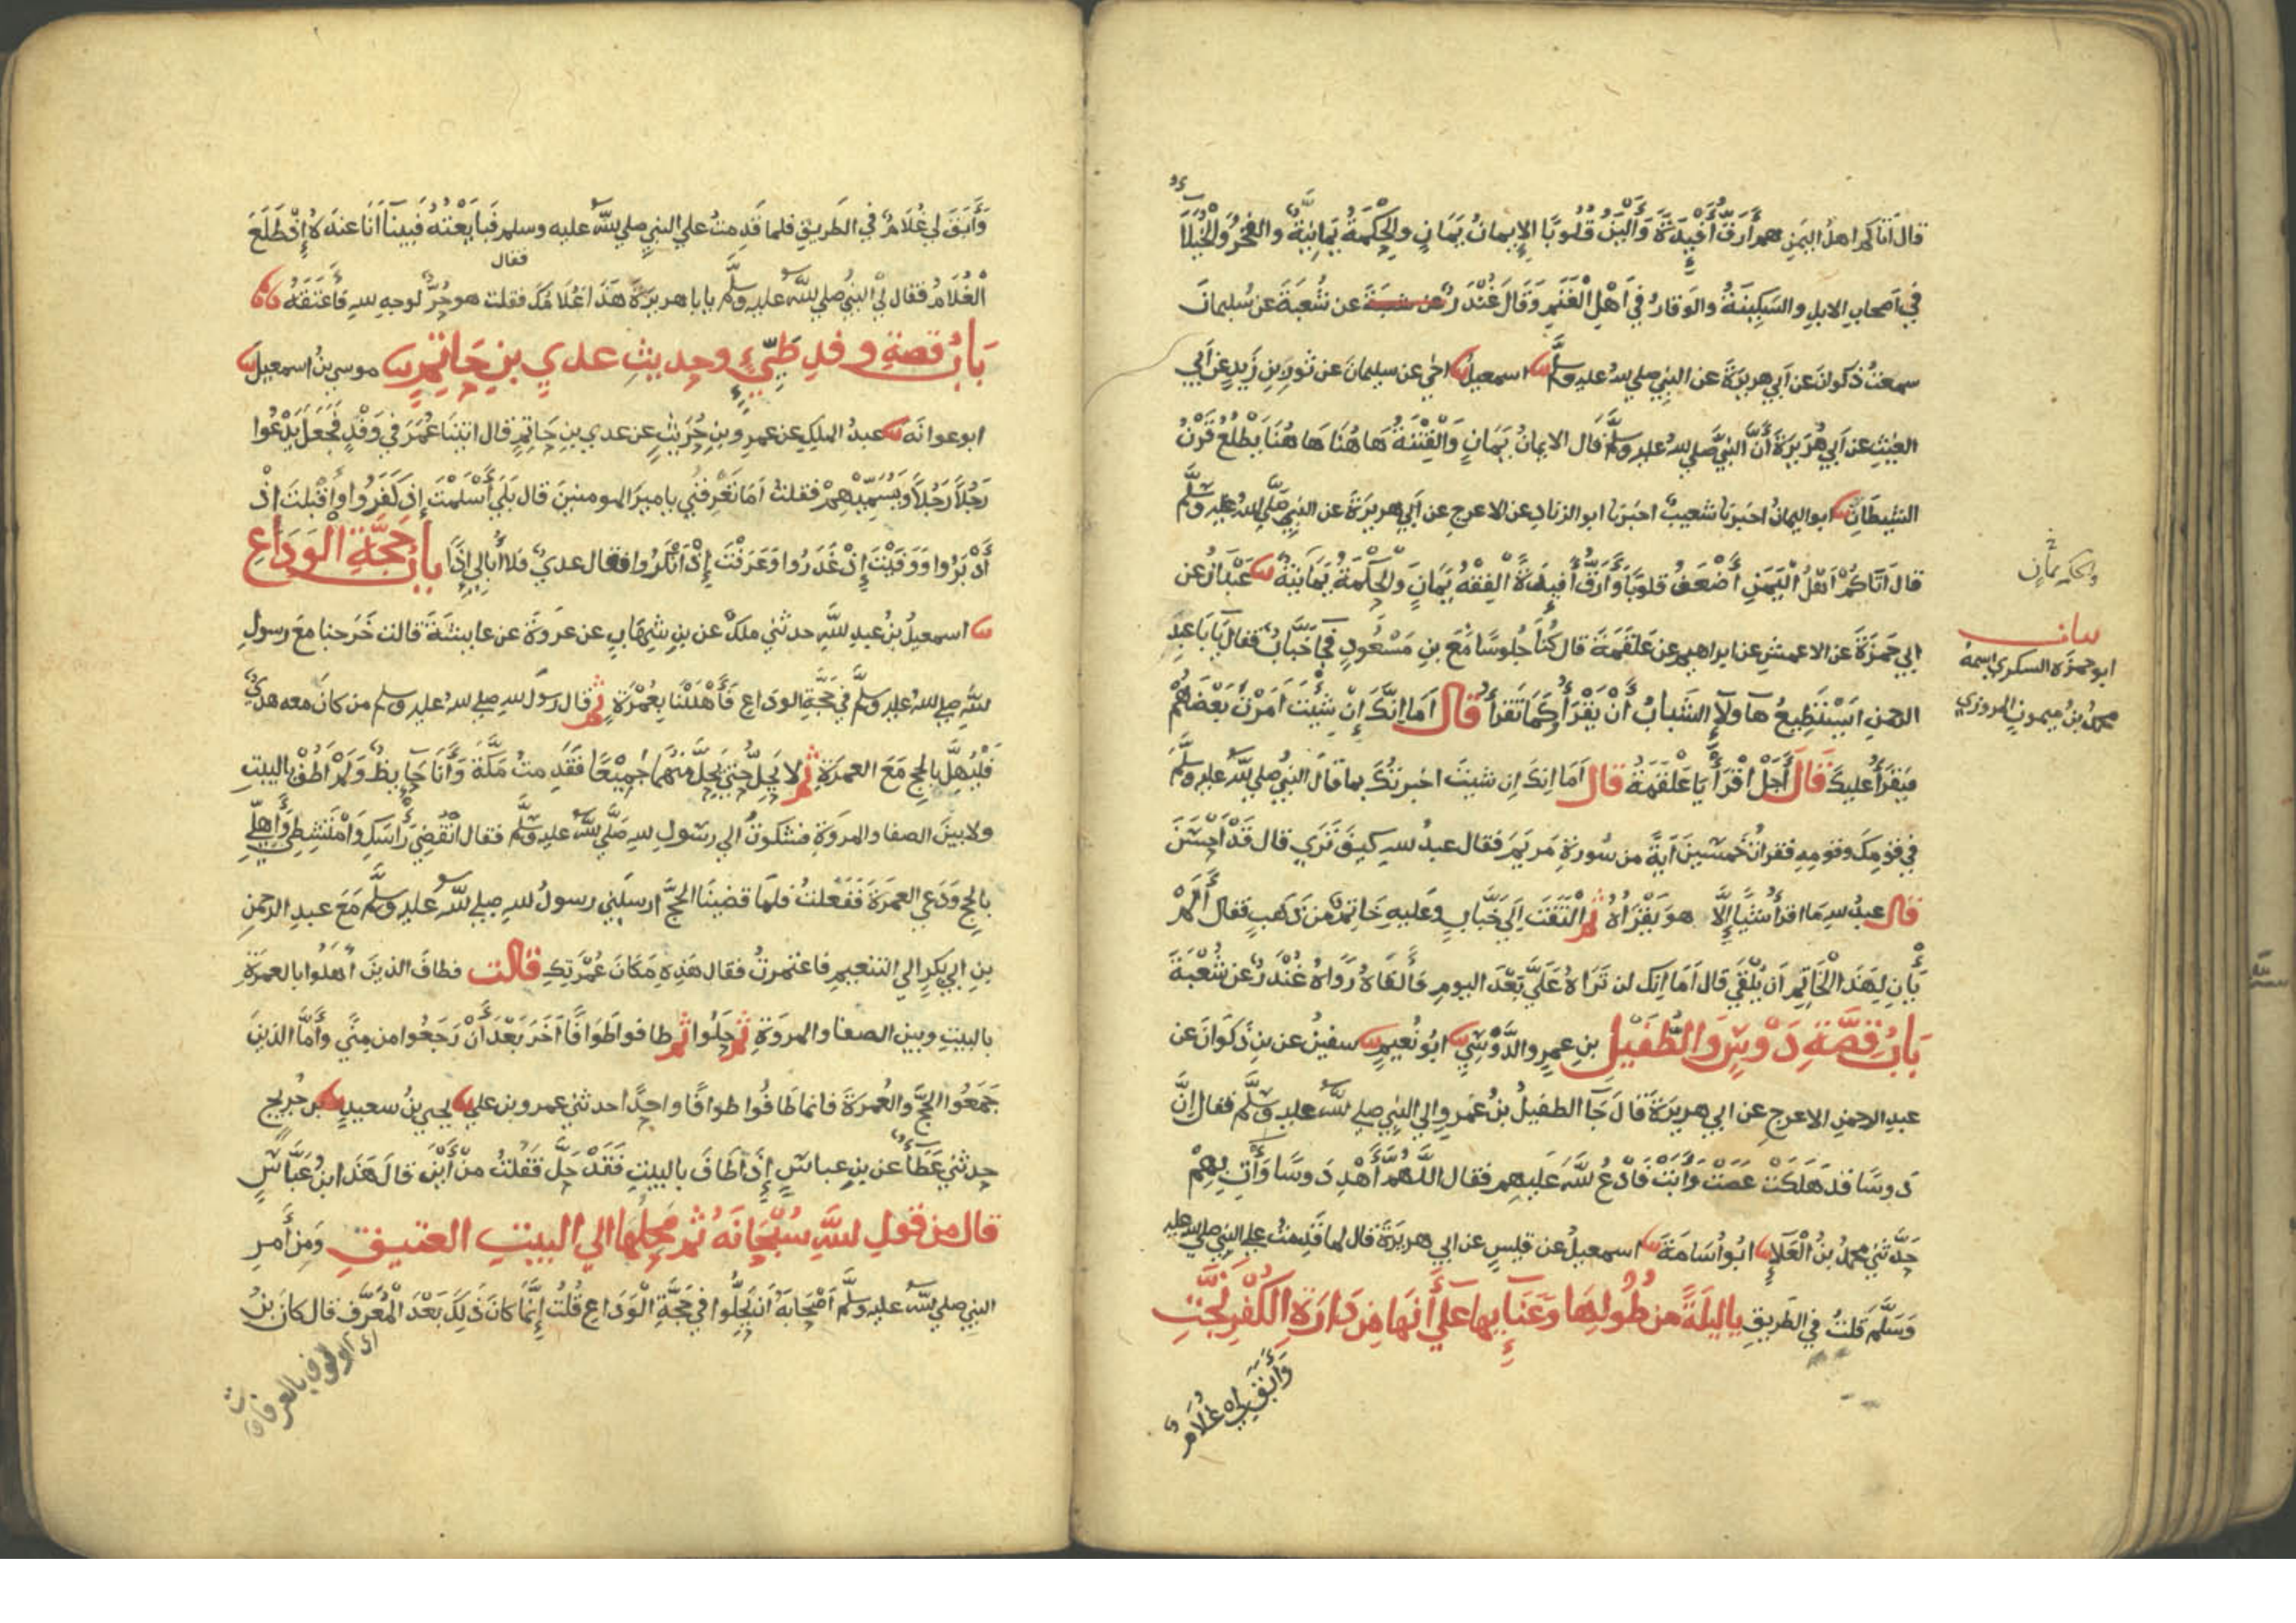 قال اتاكم اهل اليمن هم أرق أفئدة وألين قلوبا الإيمان يمان والحكمة يمانية والفخر والخيلاء
في اصحاب الابل والسكينة والوقار في اهل الغنم وقال غندر عن شعبة عن سليمان
سمعت ذكوان عن ابي هريرة عن النبي صلي الله عليه وسلم ثنا اسمعيل ثنا اخي عن سليمان عن ثور بن زيد عن ابي
الغيث عن ابي هريرة أن النبي صلي الله عليه وسلم قال الايمان يمان والفتنة هاهنا هاهنا يطلع قرن
الشيطان ثنا ابو اليمان اخبرنا شعيب اخبرنا ابو الزناد عن الاعرج عن ابي هريرة عن النبي صلي الله عليه وسلم
قال اتاكم اهل اليمن أضعف قلوبا وأرق أفئدة الفقه يمان والحكمة يمانية ثنا عبدان عن
ابي حمزة عن الاعمش عن ابراهيم عن علقمة قال كنا جلوسا مع بن مسعود فجآء خباب فقال يابا عبد
الرحمن ايستطيع هاولآء الشباب أن يقرأوا كما تقرأ قال اما انك إن شئت امرت بعضهم
فيقرأ عليك قال أجل اقرأ يا علقمة قال
اما انك ان شيت اخبرتك بما قال النبي صلي الله عليه وسلم
في قومك وقومه فقرات خمسين اية من سورة مريم فقال عبد الله كيف تري قال قد احسن
قال عبد الله ما اقرا شيا إلا هو يقراه ثم التفت الي خباب وعليه خاتم من ذهب فقال ألم
يأن لهذا الخاتم ان يلقي قال اما انك لن تراه علي بعد اليوم فالقاه رواه غندر عن شعبة
باب قصة دوس والطفيل بن عمرو الدوسي ثنا ابو نعيم ثنا سفين عن بن ذكوان عن
عبد الرحمن الاعرج عن ابي هريرة قال جآ الطفيل بن عمرو الي النبي صلي الله عليه وسلم فقال ان
دوسا قد هلكت عصت وأبت فادع الله عليهم فقال اللهم أهد دوسا وأت بهم
حدثني محمد بن العلآء ثنا ابو أسامة ثنا اسمعيل عن قيس عن ابي هريرة قال لما قدمت علي النبي صلي الله عليه
وسلم قلت في الطريق ياليلة من طولها وعنآيها علي أنها من دارة الكفر نجت
وأبق لي غلام
والحكمة يمان
ابو حمزة السكري اسمه
محمد بن ميمون المروزي
وأبق لي غلام في الطريق فلما قدمت علي النبي صلي الله عليه وسلم فبايعته فبينا انا عنده إذ طلع
فقال
الغلام فقال لي النبي صلي الله عليه وسلم يابا هريرة هذا غلامك فقلت هو حر لوجه الله فأعتقه
باب قصة وفد طيئ وحديث عدي بن حاتم ثنا موسي بن اسمعيل ثنا
ابو عوانه ثنا عبد الملك عن عمرو بن حريث عن عدي بن حاتم قال اتينا عمر في وفد فجعل يدعوا
رجلا رجلا ويسميهم فقلت أما تعرفني يامير المومنين قال بلي أسلمت إذ كفروا وأقبلت اذ
أدبروا ووفيت إذ غدروا وعرفت إذ انكروا فقال عدي فلا أبالي إذا باب حجة الوداع
ثنا اسمعيل بن عبد الله حدثني ملك عن بن شهاب عن عروة عن عايشة قالت خرجنا مع رسول
الله صلي الله عليه وسلم في حجة الوداع فأهللنا بعمرة ثم قال رسول الله صلي الله عليه وسلم من كان معه هدي
فليهل بالحج مع العمرة ثم لا يحل حتي يحل منهما جميعا فقدمت مكة وأنا حايض ولم اطف بالبيت
ولا بين الصفا والمروة فشكوت الي رسول الله صلي الله عليه وسلم فقال انقضي رأسك وامتشطي وأهلي
بالحج ودعي العمرة ففعلت فلما قضينا الحج ارسلني رسول الله صلي الله عليه وسلم مع عبد الرحمن
بن ابي بكر الي التنعيم فاعتمرت فقال هذه مكان عمرتك قالت فطاف الذين أهلوا بالعمرة
بالبيت وبين الصفا والمروة ثم حلوا ثم طافوا طوافا آخر بعد أن رجعوا من مني وأما الذين
جمعوا الحج والعمرة فانما طافوا طوافا واحدا حدثني عمرو بن علي ثنا يحيي بن سعيد ثنا بن جريج
حدثني عطآء عن بن عباس إذا طاف بالبيت فقد حل فقلت من أين قال هذا ابن عباس
قال من قول الله سبحانه ثم محلها الي البيت العتيق ومن أمر
النبي صلي الله عليه وسلم أصحابه أن يحلوا في حجة الوداع قلت إنما كان ذلك بعد المعرف قال كان بن
اي الوقوف بالعرفات